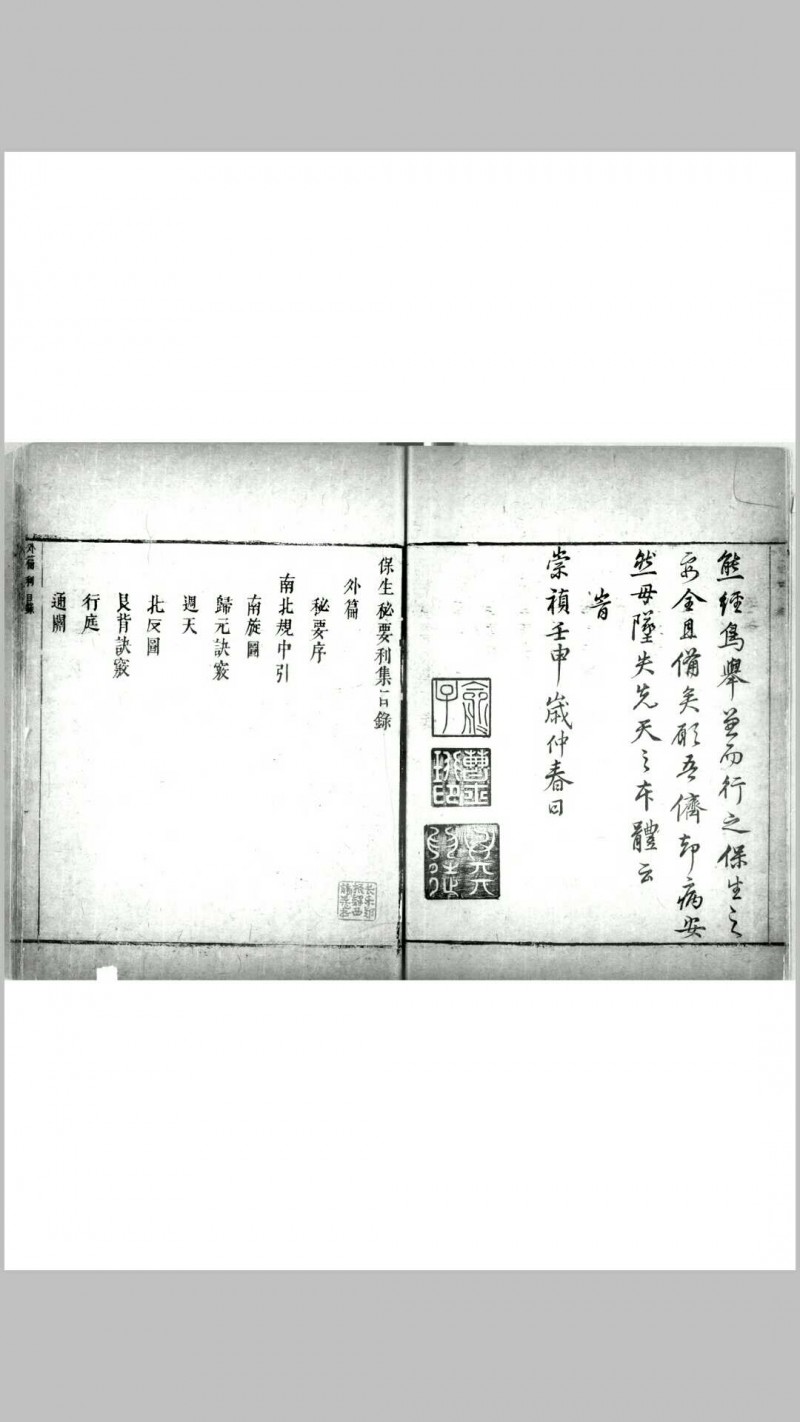 熊經鳥舉兼而行之保生之
安全且備矣願吾儕却病安
然毋墜失先天之本體云
峕
崇禎壬申歲仲春日
保生秘要利集目錄
外篇
秘要序
南北規中引
南旋圖
歸元訣竅
週天
北反圖
艮背訣竅
行庭
通關
外篇 利 目錄